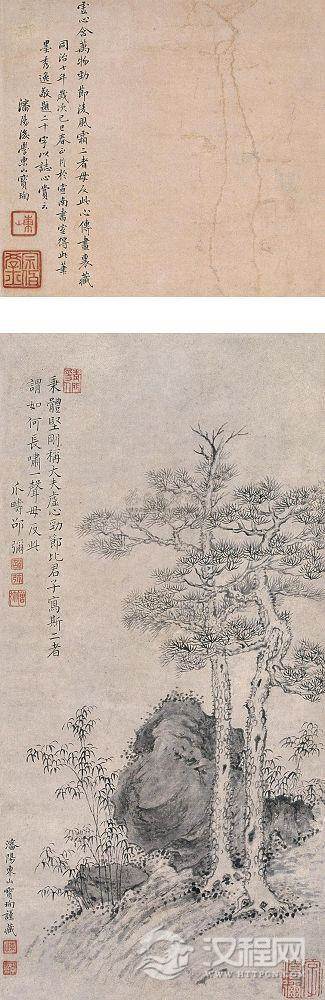 虚心含萬物勁節凌風霜二者毋反此心傳畫裏藏
同治七年歲次己巳春正月於宣南書室得此筆
墨秀逸敬題二十字以誌心賞云
瀋陽後學東山寶珣
秉體堅剛稱大夫虛心勁節比君子寫斯二者
謂如何長嘯一聲毋反此
瓜疇邵彌
瀋陽東山寶珣謹藏
汉程网